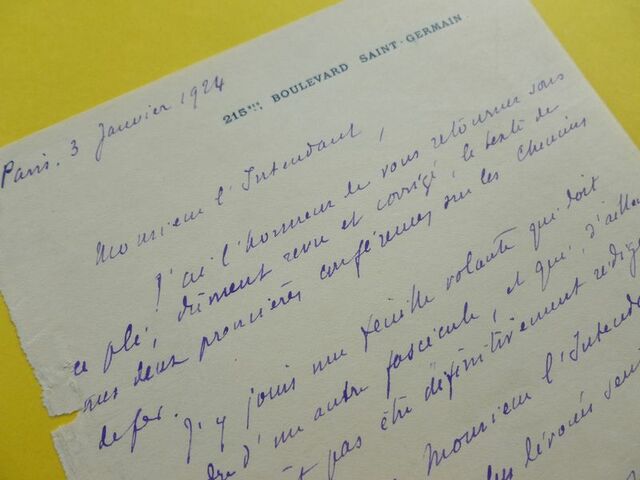 215 BOULEVARD SAINT-GERMAIN
Paris. 3 Janvier 1924
Monsieur l'Intendant,
J'ai l'honneur de vous retourner sous
ce pli, dûment revu et corrigé, le texte de
mes deux premières conférences sur les Chemins
de fer.
J'y joins une feuille volante qui doit
d'un autre fascicule, et qui, d'aille
pas été définitivement rédigé
Monsieur l'Intenda
les dévoués sen